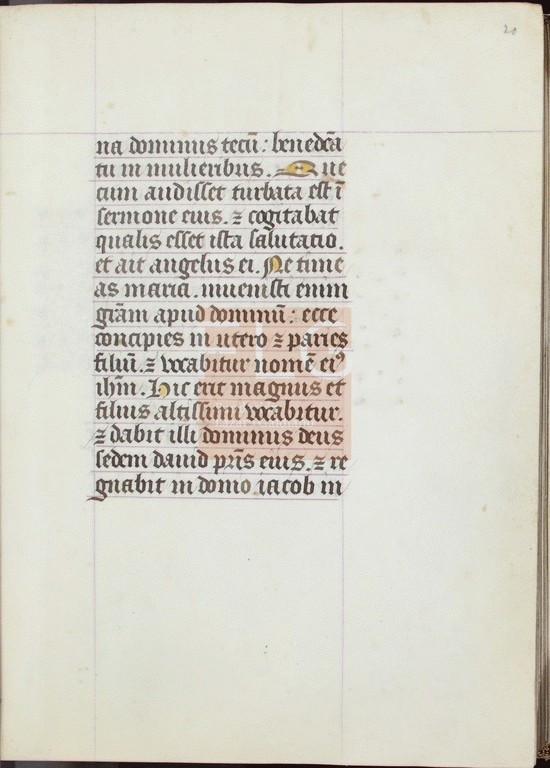 20
na dominus tecū: benedc̄a
tu in mulieribus. Que
cum audisset turbata est ī
sermone eius. ⁊ cogitabat
qualis esset ista salutatio.
et ait angelus ei. Ne time
as maria. inuenisti enim
grām apud dominū: ecce
concipies in utero ⁊ paries
filiū. ⁊ vocabitur nomē eiꝰ
ihm̄. Hic erit magnus et
filius altissimi vocabitur.
⁊ dabit illi dominus deus
sedem dauid pr̄is eius. ⁊ re
gnabit in domo iacob in
FLG